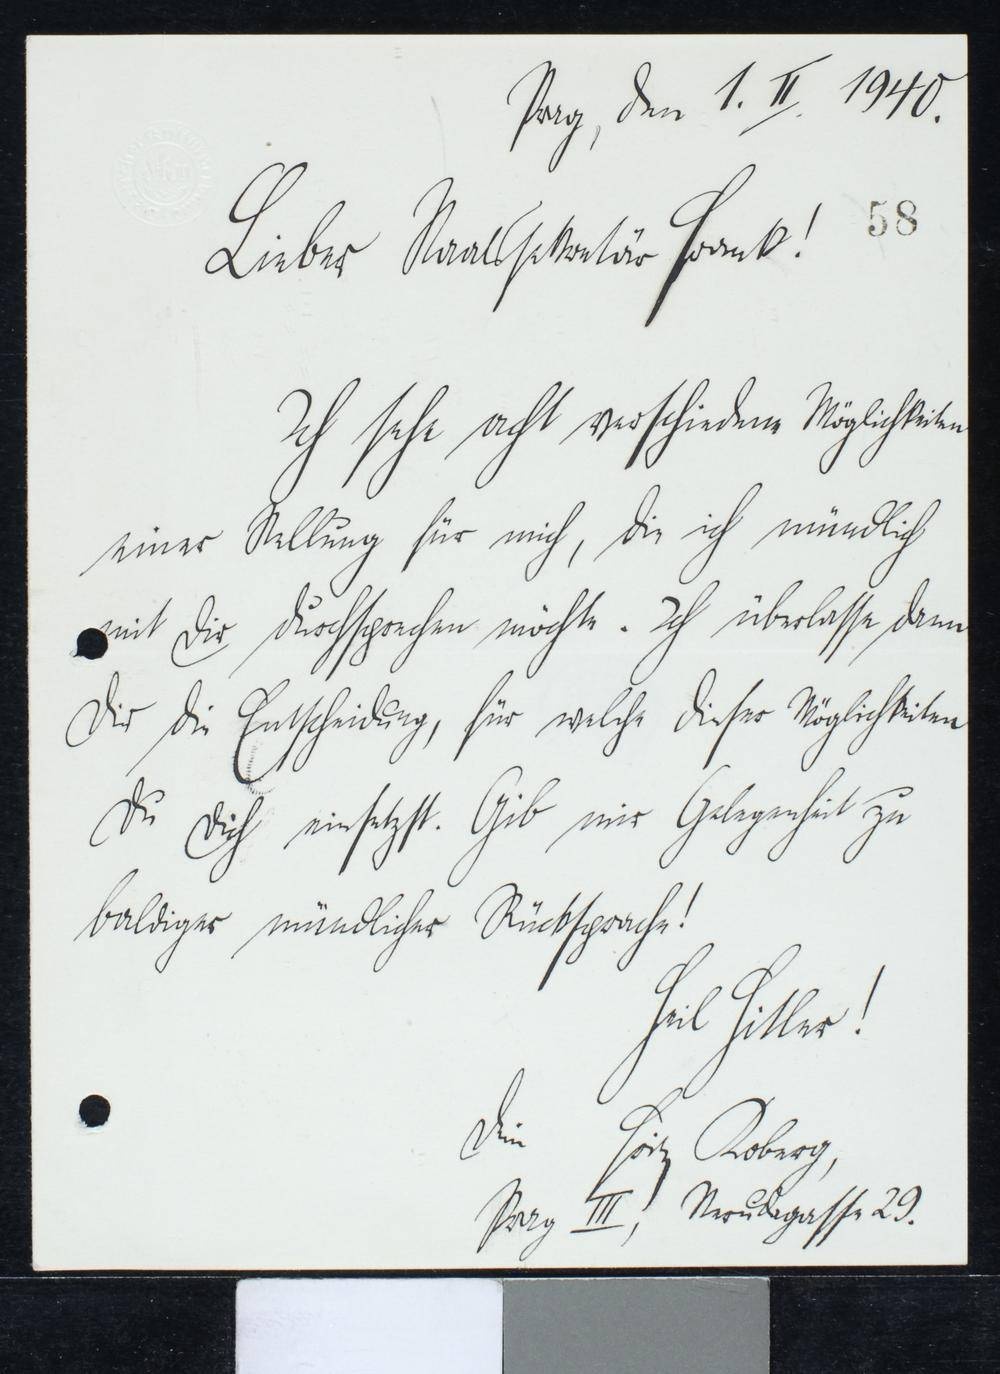 Prag, den 1. II. 1940.
58
Lieber Staatssekretär Frank!
Ich sehe acht verschiedene Möglichkeiten
einer Stellung für mich, die ich mündlich
mit Dir durchsprechen möchte. Ich überlasse dann
Dir die Entscheidung, für welche dieser Möglichkeiten
Du Dich einsetzst. Gib mir Gelegenheit zu
baldiger mündlicher Rücksprache!
Heil Hitler!
Dein Fritz Koberg,
Prag III, Nerudagasse 29.